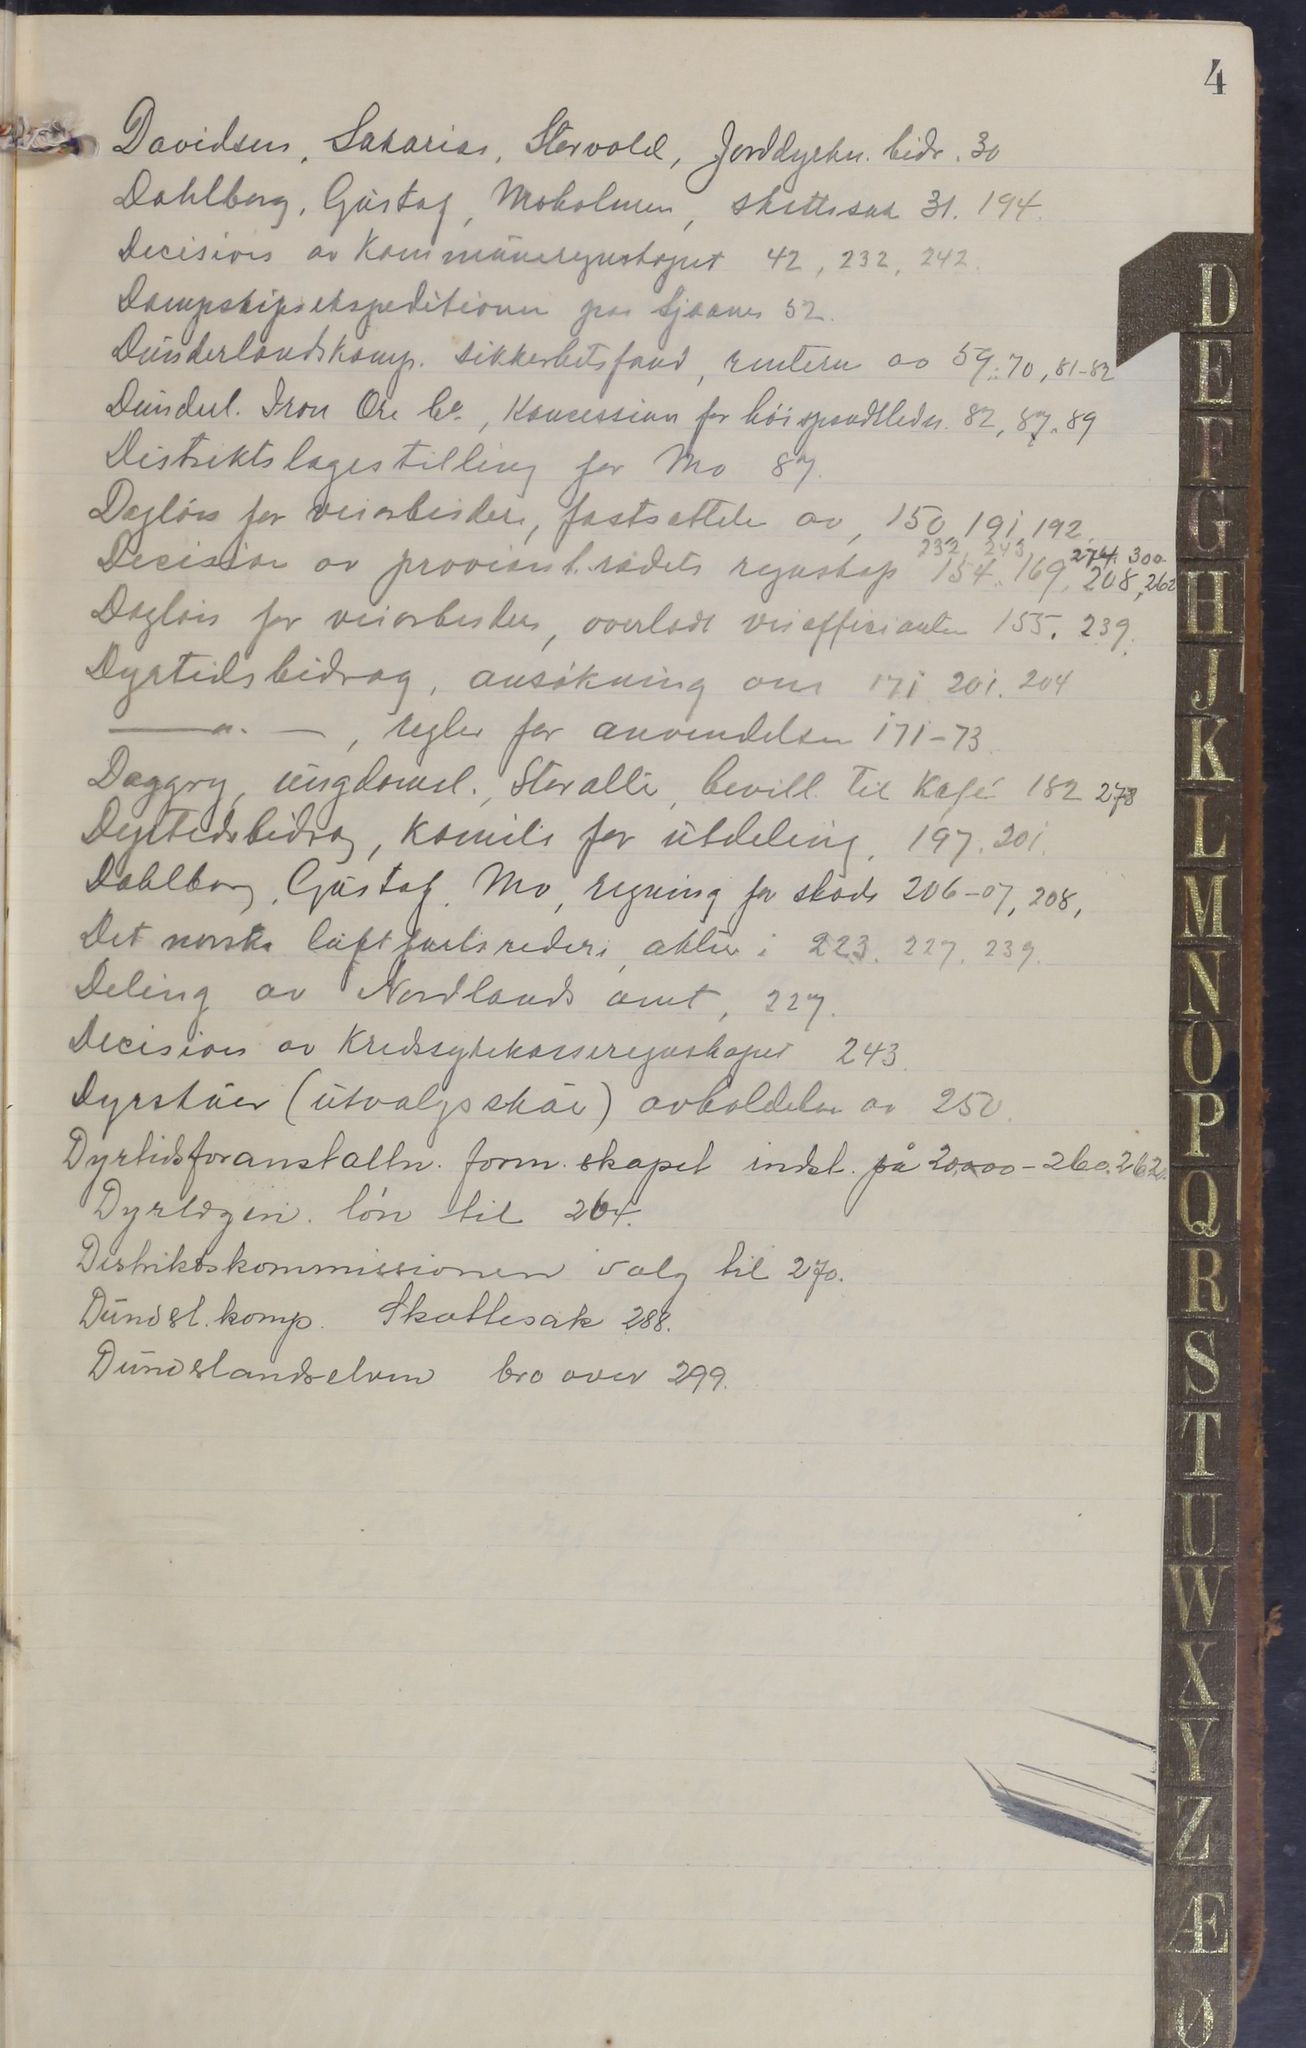 4
Davidsen, Sakarias, Storvold, Jorddyrkn. bidr. 30
Dahlberg, Gustaf, Moholmen, skattesak 31. 194.
Decision av Kommuneregnskapet 42, 232, 242.
Dampskipsekspeditionen paa Hjaanes 52.
Dunderlandskomp. sikkerhetsfond, renterne av 59, 70, 81-82
Dunderl. Iron Ore Co., Koncession for høispændtledn. 82, 87, 89
Distriktslægestilling for Mo 87.
Dagløn for veiarbeidere, fastsættelse av, 150, 191, 192.
232, 243, 274. 300
Decision av proviant.rådets regnskap 154, 169, 208, 262
Dagløn for veiarbeidere, overladt veioffisianten 155, 239.
Dyrtidsbidrag, ansøkning om 171. 201. 204
— " —, regler for anvendelsen 171-73
Daggry, ungdomsl., Storalli, bevill. til Kafé 182 278
Dyrtidsbidrag, Komite for utdeling, 197, 201.
Dahlberg, Gustaf, Mo, regning for skade 206-07, 208,
Det norske luftfartsrederi, aktier i 223, 227, 239.
Deling av Nordlands amt, 227.
Decision av Kredssykekasseregnskapet 243.
Dyrskuer (utvalgsskue) avholdelse av 250.
Dyrtidsforanstaltn. form.skapet indst. på 20,000 - 260. 262.
Dyrlægen. løn til 264.
Distriktskommissionen valg til 270.
Dunderl. komp. Skattesak 288.
Dunderlandselven bro over 299.
D
E
F
G
H
J
K
L
M
N
O
P
Q
R
S
T
U
W
X
Y
Z
Æ
Ø